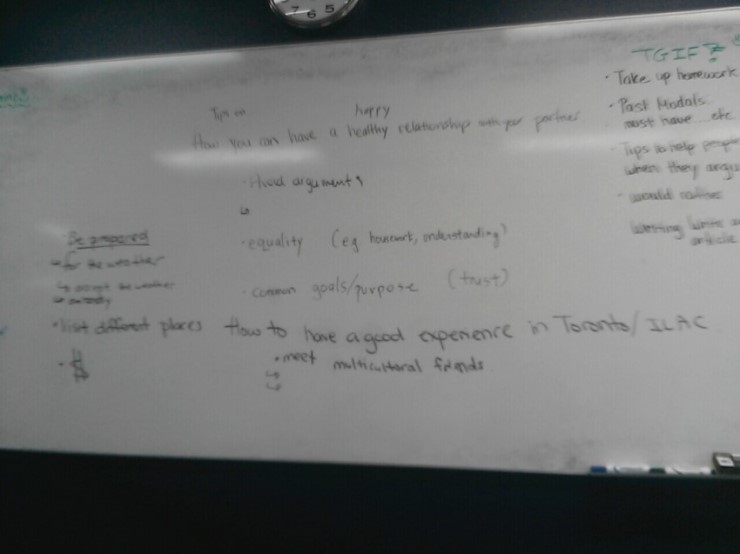 7 6 5
TGIF
• Take up homework
• Past Modals
must have etc
Tips to help people
when they argu
would rather
Writing write a
article
Tips on
happy
How you can have a healthy relationship with your partner
• Avoid arguments
• equality (eg housework, understanding)
• common goals/purpose (trust)
• Be prepared
for the weather
accept the weather
• list different places
• $
How to have a good experience in Toronto/ILAC
• meet multicultural friends